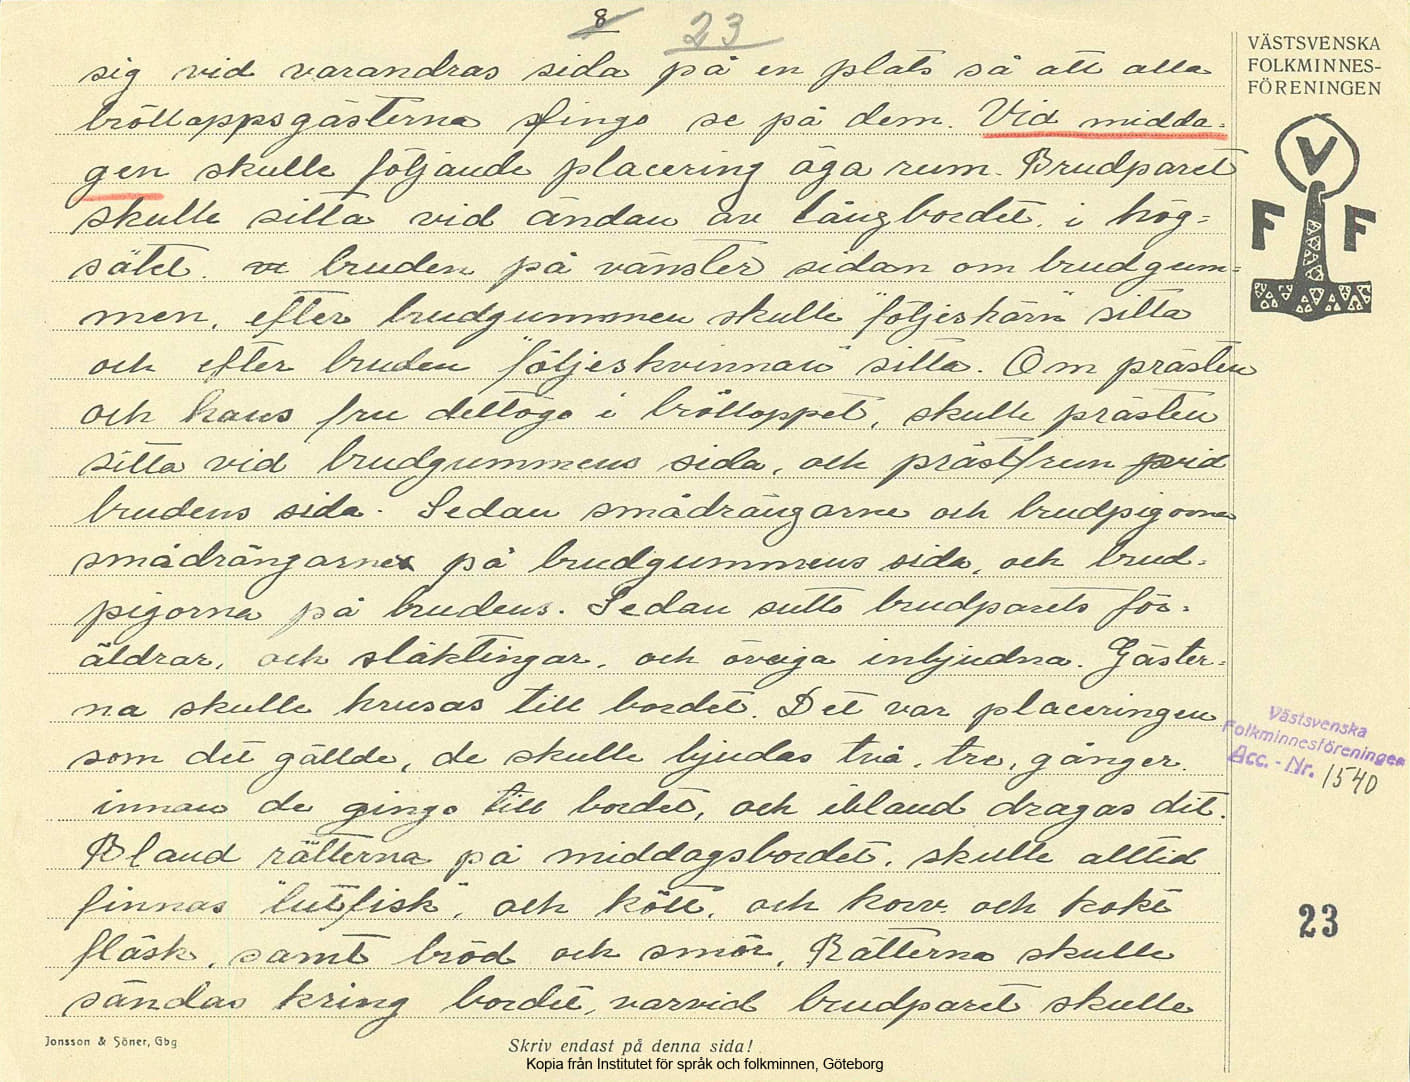 8 23
VÄSTSVENSKA
FOLKMINNES-
FÖRENINGEN
V
F F
sig vid varandras sida på en plats så att alla
bröllappsgästerna fingo se på dem. Vid midda=
gen skulle följande placering äga rum. Brudparet
skulle sitta vid ändan av långbordet, i hög=
sätet. bruden på vänster sidan om brudgum=
men, efter brudgummen skulle "följeskärn" sitta
och efter bruden "följeskvinnan" sitta. Om prästen
och hans fru deltogo i brölloppet, skulle prästen
sitta vid brudgummens sida, och prästfrun vid
brudens sida. Sedan smådrängarne och brudpigorna
smådrängarne på brudgummens sida, och brud=
pigorna på brudens. Sedan sutto brudparets för=
äldrar, och släktingar, och övriga inbjudna. Gäster=
na skulle krusas till bordet. Det var placeringen
som det gällde, de skulle bjudas två, tre, gånger
innan de gingo till bordet, och ibland dragas dit.
Bland rätterna på middagsbordet, skulle alltid
finnas "lutfisk", och kött, och korv. och kokt
fläsk, samt bröd och smör. Rätterna skulle
sändas kring bordet, varvid brudparet skulle
Västsvenska
Folkminnesföreningen
Acc. - Nr. 1540
23
Jonsson & Söner, Gbg
Skriv endast på denna sida!
Kopia från Institutet för språk och folkminnen, Göteborg